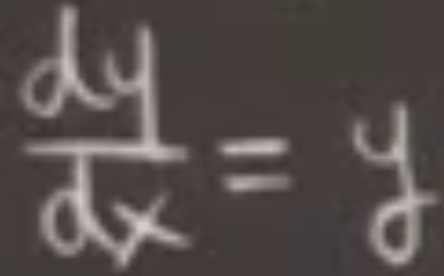 dy/dx = y